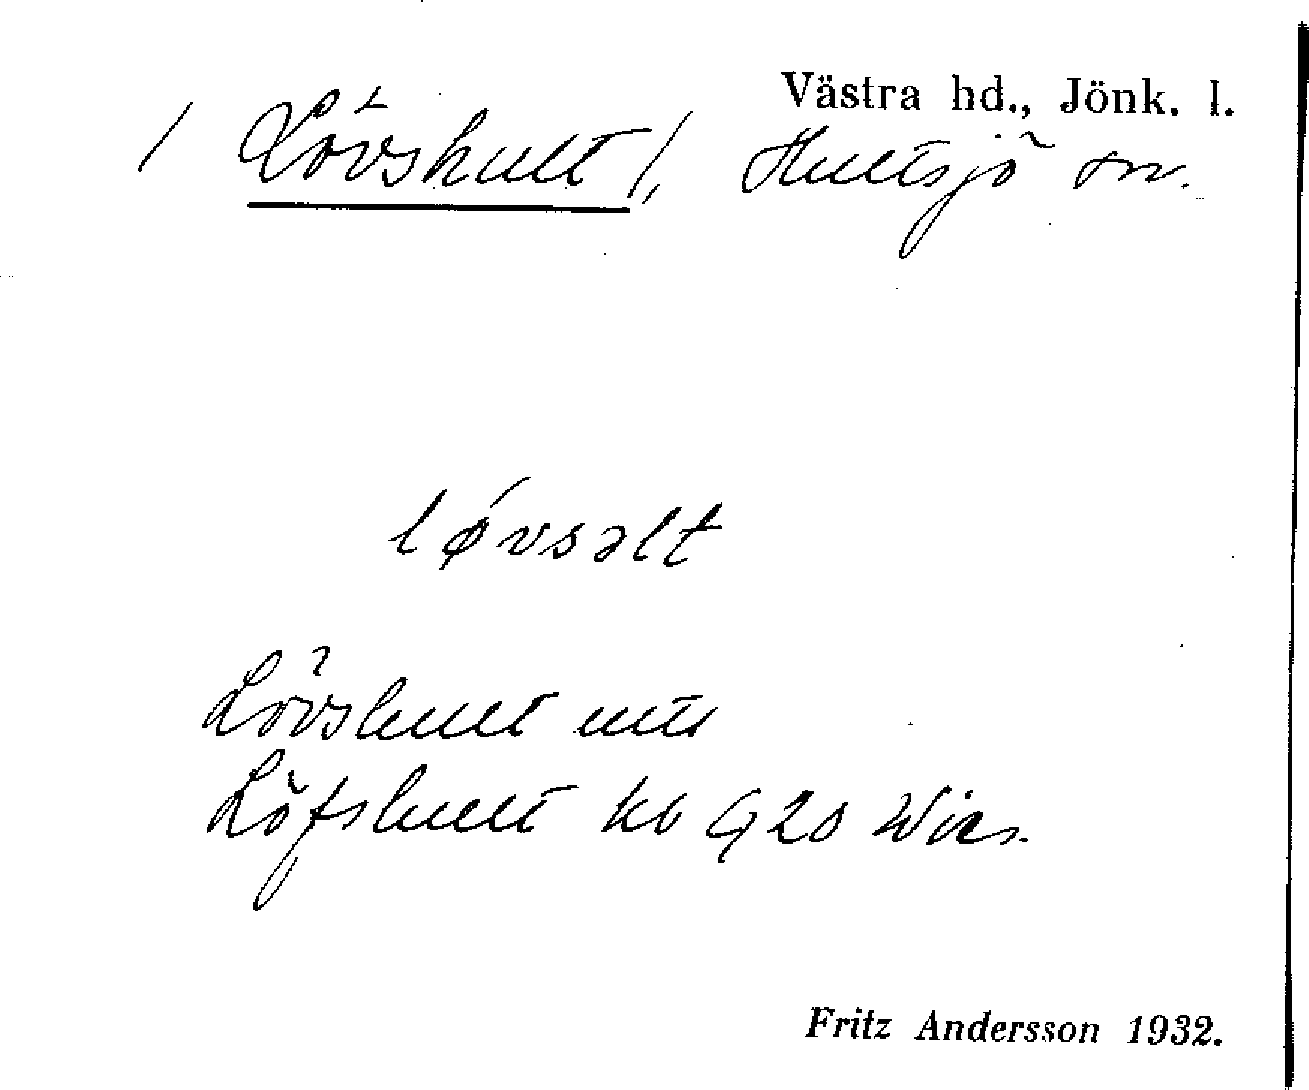 Västra hd., Jönk. l.
/ Lövshult /, Hultsjö sn.
løvsəlt
Lövshult
Löfshult kb G20
Fritz Andersson 1932.